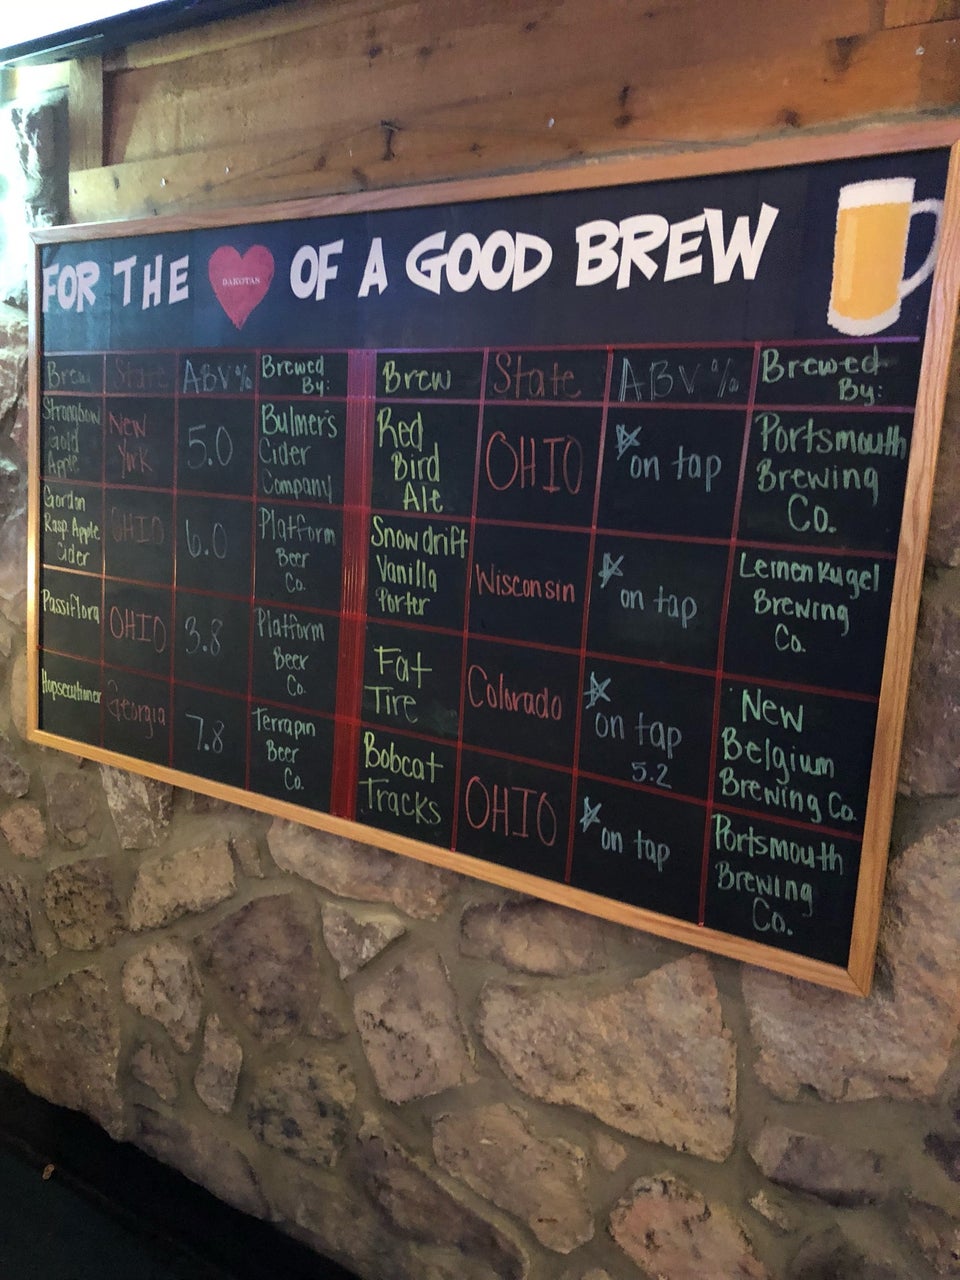 FOR THE DAKOTAS OF A GOOD BREW
Brew State ABV% Brewed By:
Strongbow Gold Apple New York 5.0 Bulmer's Cider Company
Gordon Rasp. Apple Cider OHIO 6.0 Platform Beer Co.
Passiflora OHIO 3.8 Platform Beer Co.
Hopsecutioner Georgia 7.8 Terrapin Beer Co.
Brew State ABV% Brewed By:
Red Bird Ale OHIO on tap Portsmouth Brewing Co.
Snowdrift Vanilla Porter Wisconsin on tap Leinenkugel Brewing Co.
Fat Tire Colorado on tap 5.2 New Belgium Brewing Co.
Bobcat Tracks OHIO on tap Portsmouth Brewing Co.